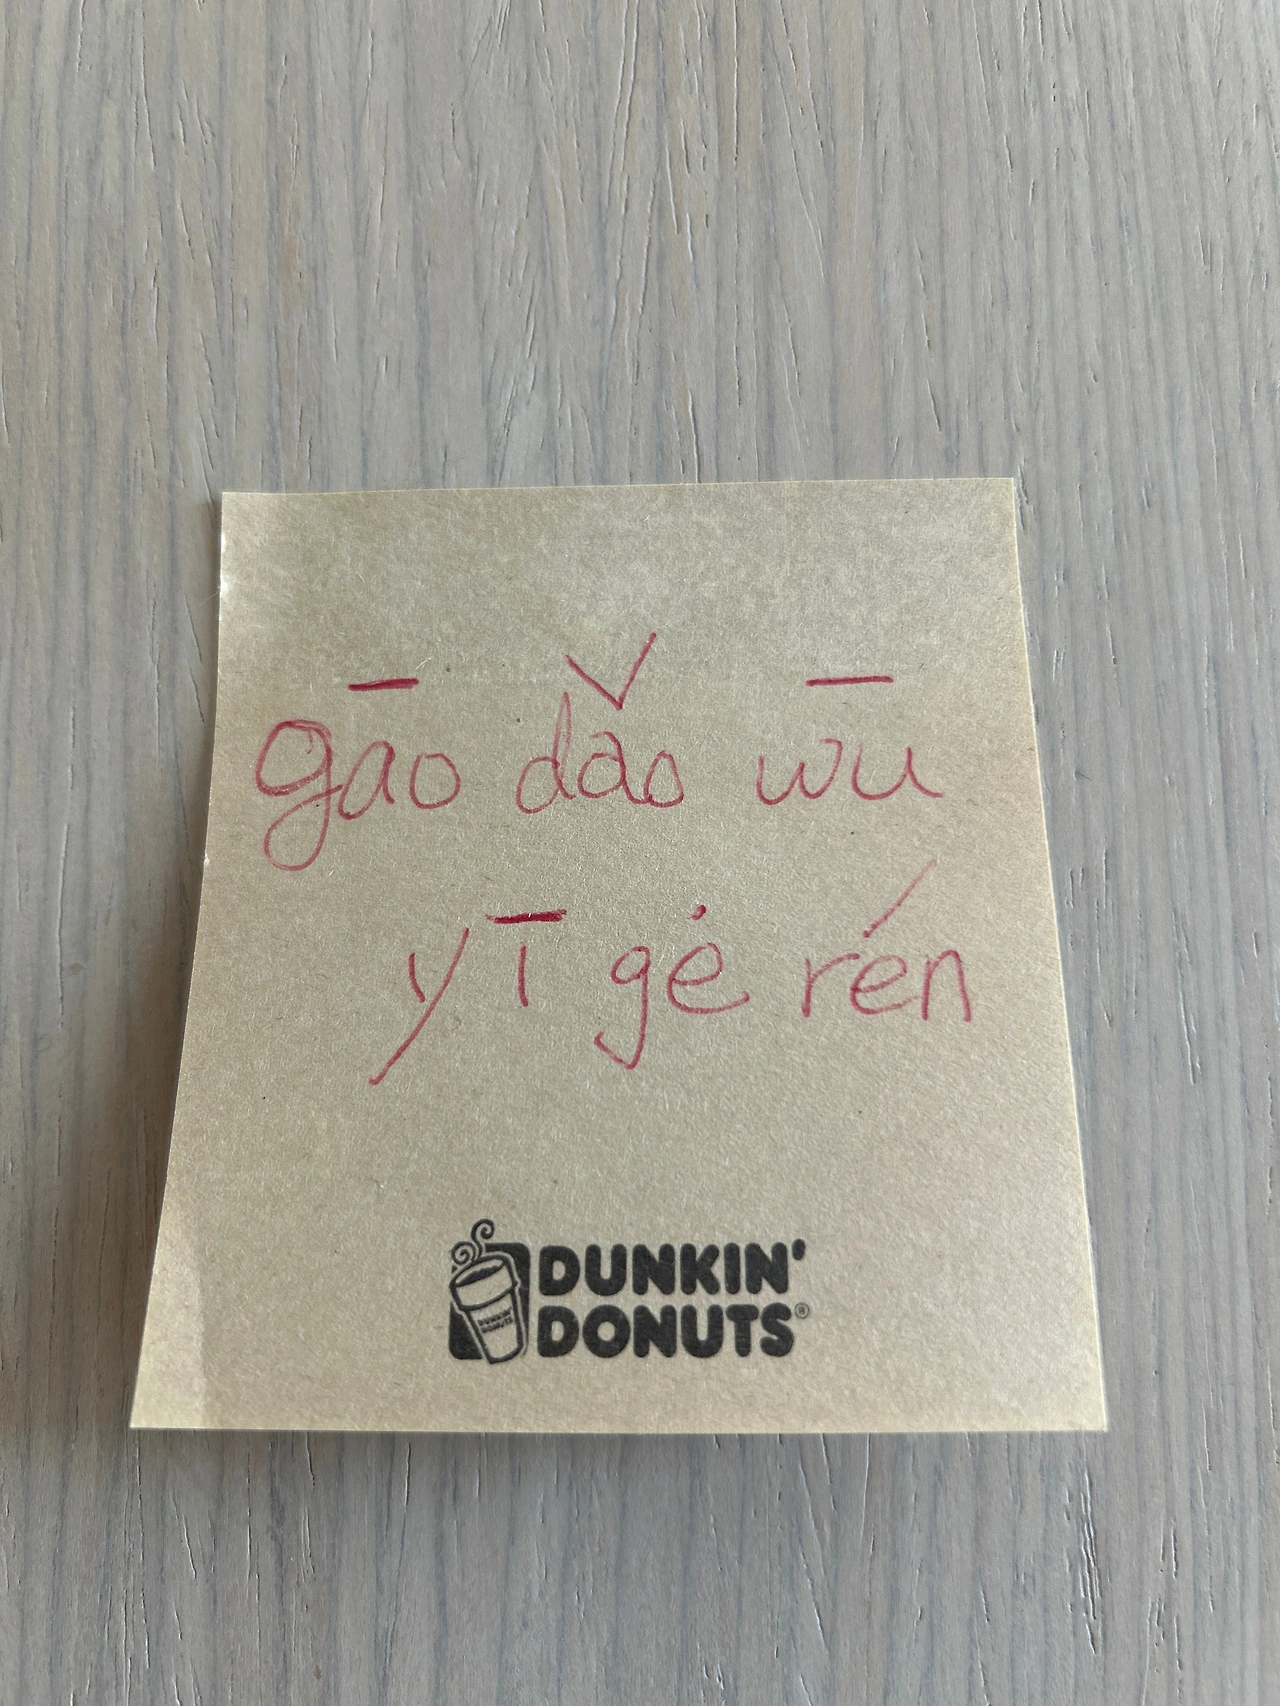 gāo dǎo wū
yī gė rén
DUNKIN'
DONUTS®